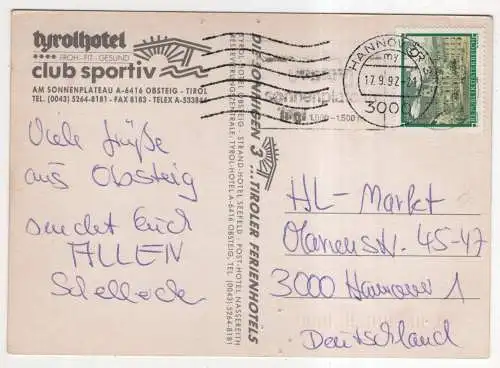 tyrolhotel
FROH·FIT·GESUND
club sportiv
AM SONNENPLATEAU A-6416 OBSTEIG - TIROL
TEL. (0043) 5264-8181 - FAX 8183 - TELEX A-
Viele Grüße
aus Obsteig
sendet Euch
ALLEN
DIE SONNIGEN 3 ... TIROLER FERIENHOTELS
RESERVIERUNGSZENTRALE: TYROL-HOTEL A-6416 OBSTEIG, TEL. (0043)-5264-8181
STRAND-HOTEL SEEFELD - POST-HOTEL NASSEREITH
HANNOVER
17.9.92-21
3000
sonnenplateau
tirol 1.000-1.500 m
REPUBLIK ÖSTERREICH
HL-Markt
Marienstr. 45-47
3000 Hannover 1
Deutschland